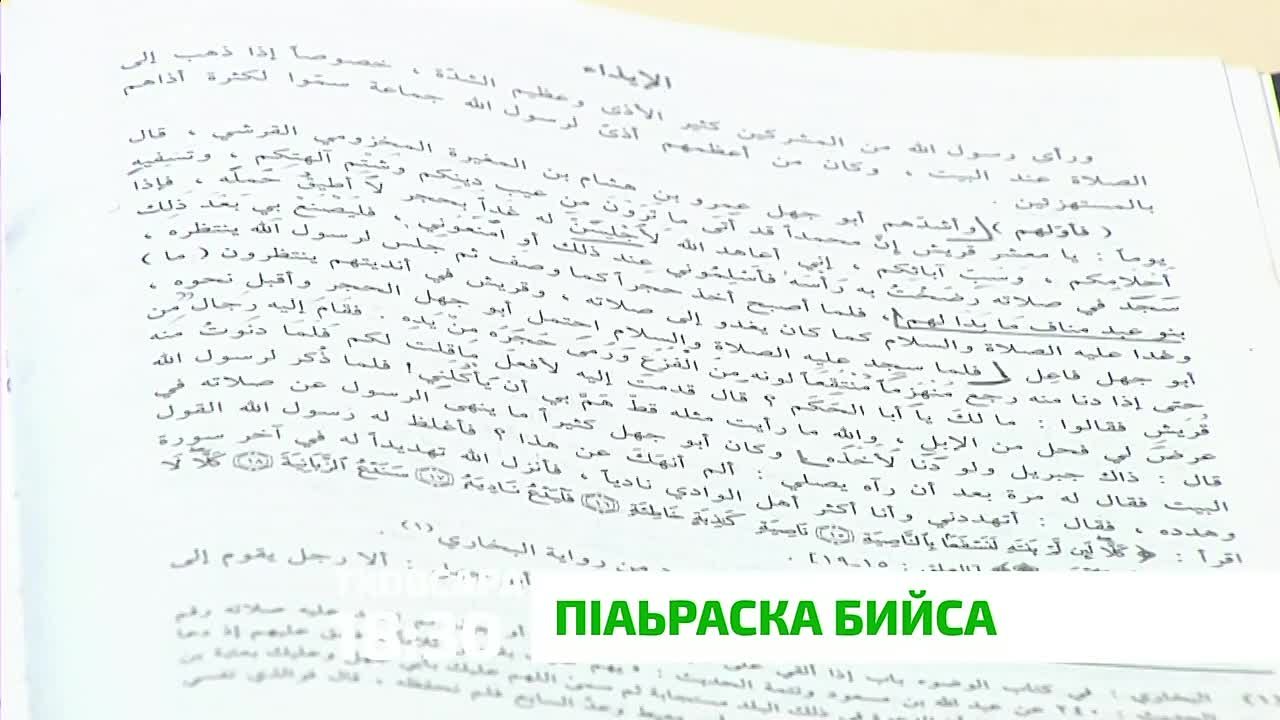 الإيذاء
ورأى رسول الله من المشركين كثير الأذى وعظيم الشدّة ، خصوصاً إذا ذهب إلى
الصلاة عند البيت ، وكان من أعظمهم أذىً لرسول الله جماعة سموا لكثرة أذاهم
بالمستهزئين .
( فأولهم ) وأشدهم أبو جهل عمرو بن هشام بن المغيرة المخزومي القرشي ، قال
يوماً : يا معشر قريش إنّ محمداً قد أتى ما ترون من عيب دينكم وشتم آلهتكم ، وتسفيه
أحلامكم ، وسب آبائكم ، إني أعاهد الله لأجلسن له غداً بحجر لا أطيق حمله ، فإذا
سجد في صلاته رضخت به رأسه فأسلموني عند ذلك أو امنعوني ، فليصنع بي بعد ذلك
بنو عبد مناف ما بدا لهم ، فلما أصبح أخذ حجراً كما وصف ثم جلس لرسول الله ينتظره ،
وغدا عليه الصلاة والسلام كما كان يغدو إلى صلاته ، وقريش في أنديتهم ينتظرون ( ما )
أبو جهل فاعل فلما سجد عليه الصلاة والسلام احتمل أبو جهل الحجر وأقبل نحوه ،
حتى إذا دنا منه رجع منهزماً منتقعاً لونه من الفزع ورمى حجره من يده . فقام إليه رجال من
قريش فقالوا : ما لك يا أبا الحكم ؟ قال قدمت إليه لأفعل ما قلت لكم فلما دنوت منه
عرض لي فحل من الإبل ، والله ما رأيت مثله قط هم بي أن يأكلني! فلما ذكر لرسول الله
قال : ذاك جبريل ولو دنا لأخذه وكان أبو جهل كثيراً ما ينهى الرسول عن صلاته في
البيت فقال له مرة بعد أن رآه يصلي : ألم أنهك عن هذا ؟ فأغلظ له رسول الله القول
وهدده ، فقال : أتهددني وأنا أكثر أهل الوادي نادياً ، فأنزل الله تهديداً له في آخر سورة
اقرأ : ﴿ كلا لئن لم ينته لنسفعا بالناصية (١٥) ناصية كاذبة خاطئة (١٦) فليدع ناديه (١٧) سندع الزبانية (١٨) كلا لا
[العلق : ١٥-١٩] .
من رواية البخاري (١) . : ألا رجل يقوم إلى
18:30
ПӀАЬРАСКА БИЙСА
(١) البخاري : في كتاب الوضوء باب إذا ألقي على